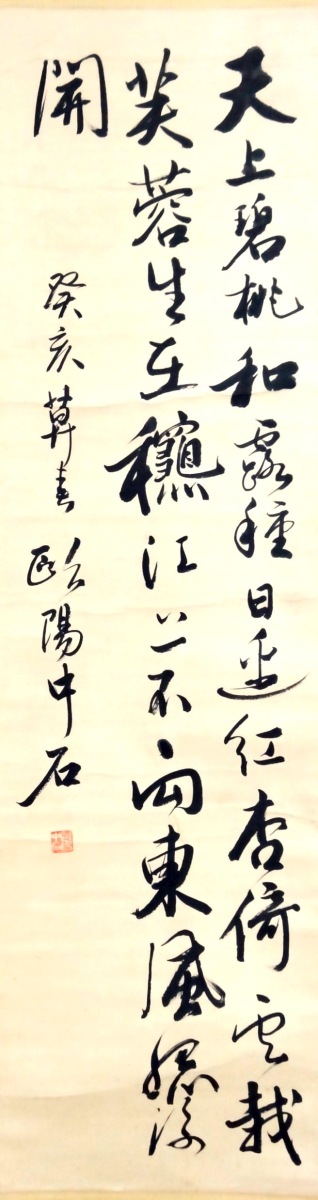 天上碧桃和露種日邊紅杏倚云栽
芙蓉生在龝江上不向東風怨
開
癸亥莫春
歐陽中石